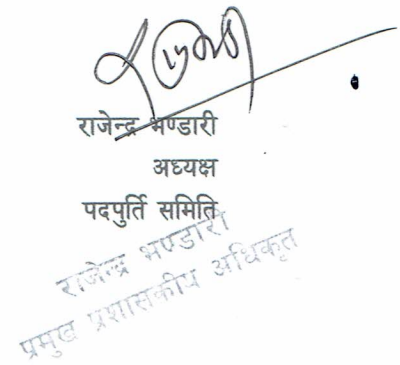 राजेन्द्र भण्डारी
अध्यक्ष
पदपुर्ति समिति
राजेन्द्र भण्डारी
प्रमुख प्रशासकीय अधिकृत